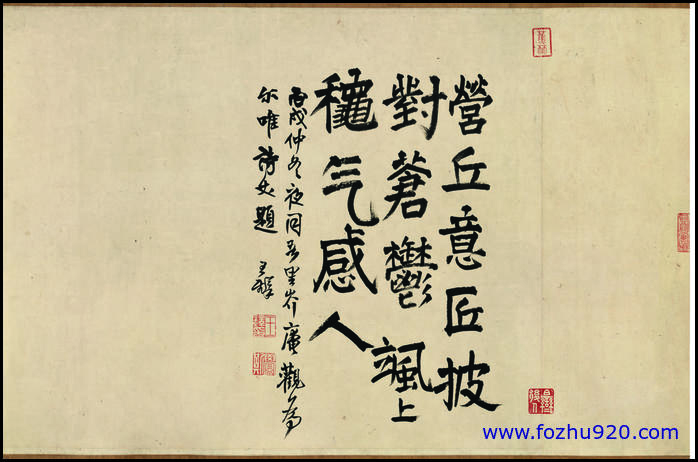 營丘意匠披
對蒼鬱颯上
龝气感人
丙戌仲冬夜同吾里岑廉觀為
尒唯詩友題
王鐸
www.fozhu920.com